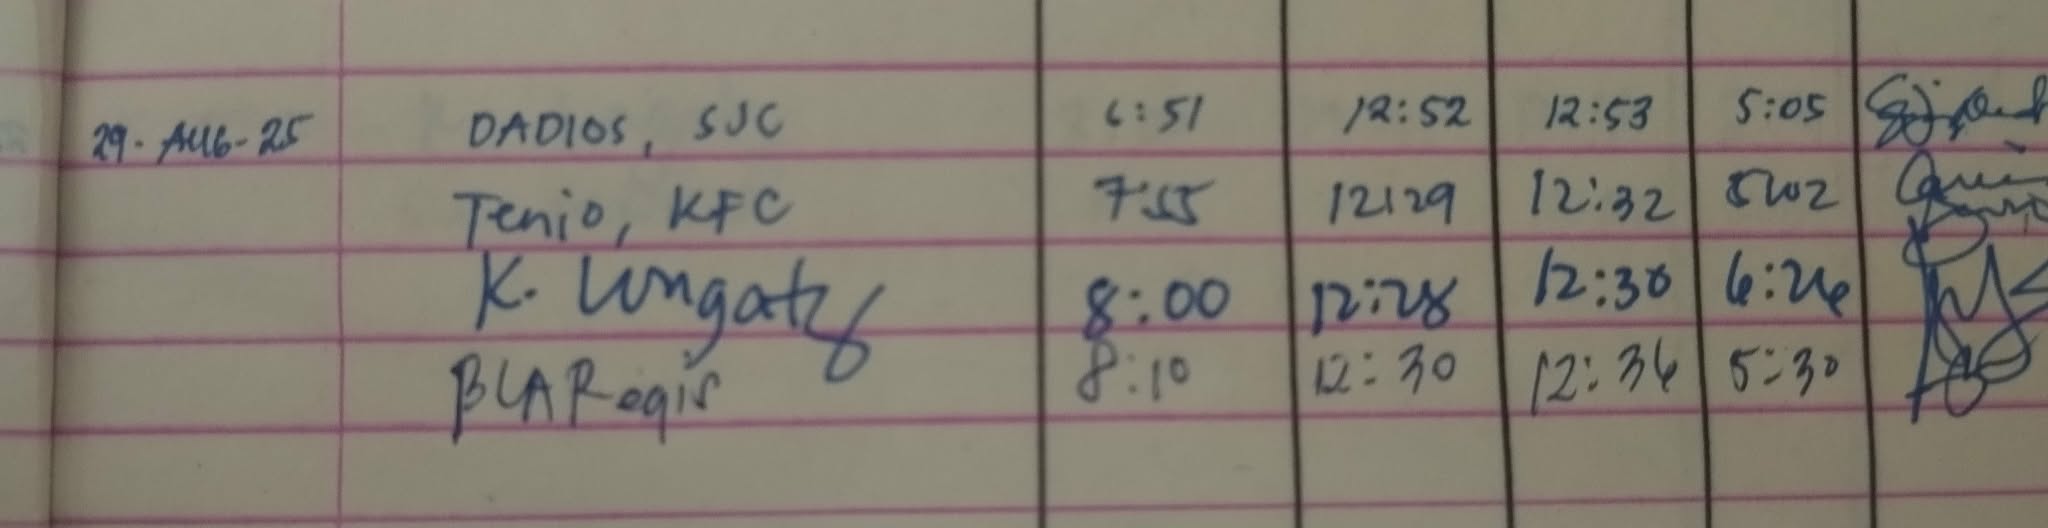 29-AUG-25 DADIOS, SJC 6:51 12:52 12:53 5:05
Tenio, KFC 7:55 12:29 12:32 5:02
K. 8:00 12:28 12:30 6:26
BLA Regis 8:10 12:30 12:36 5:30